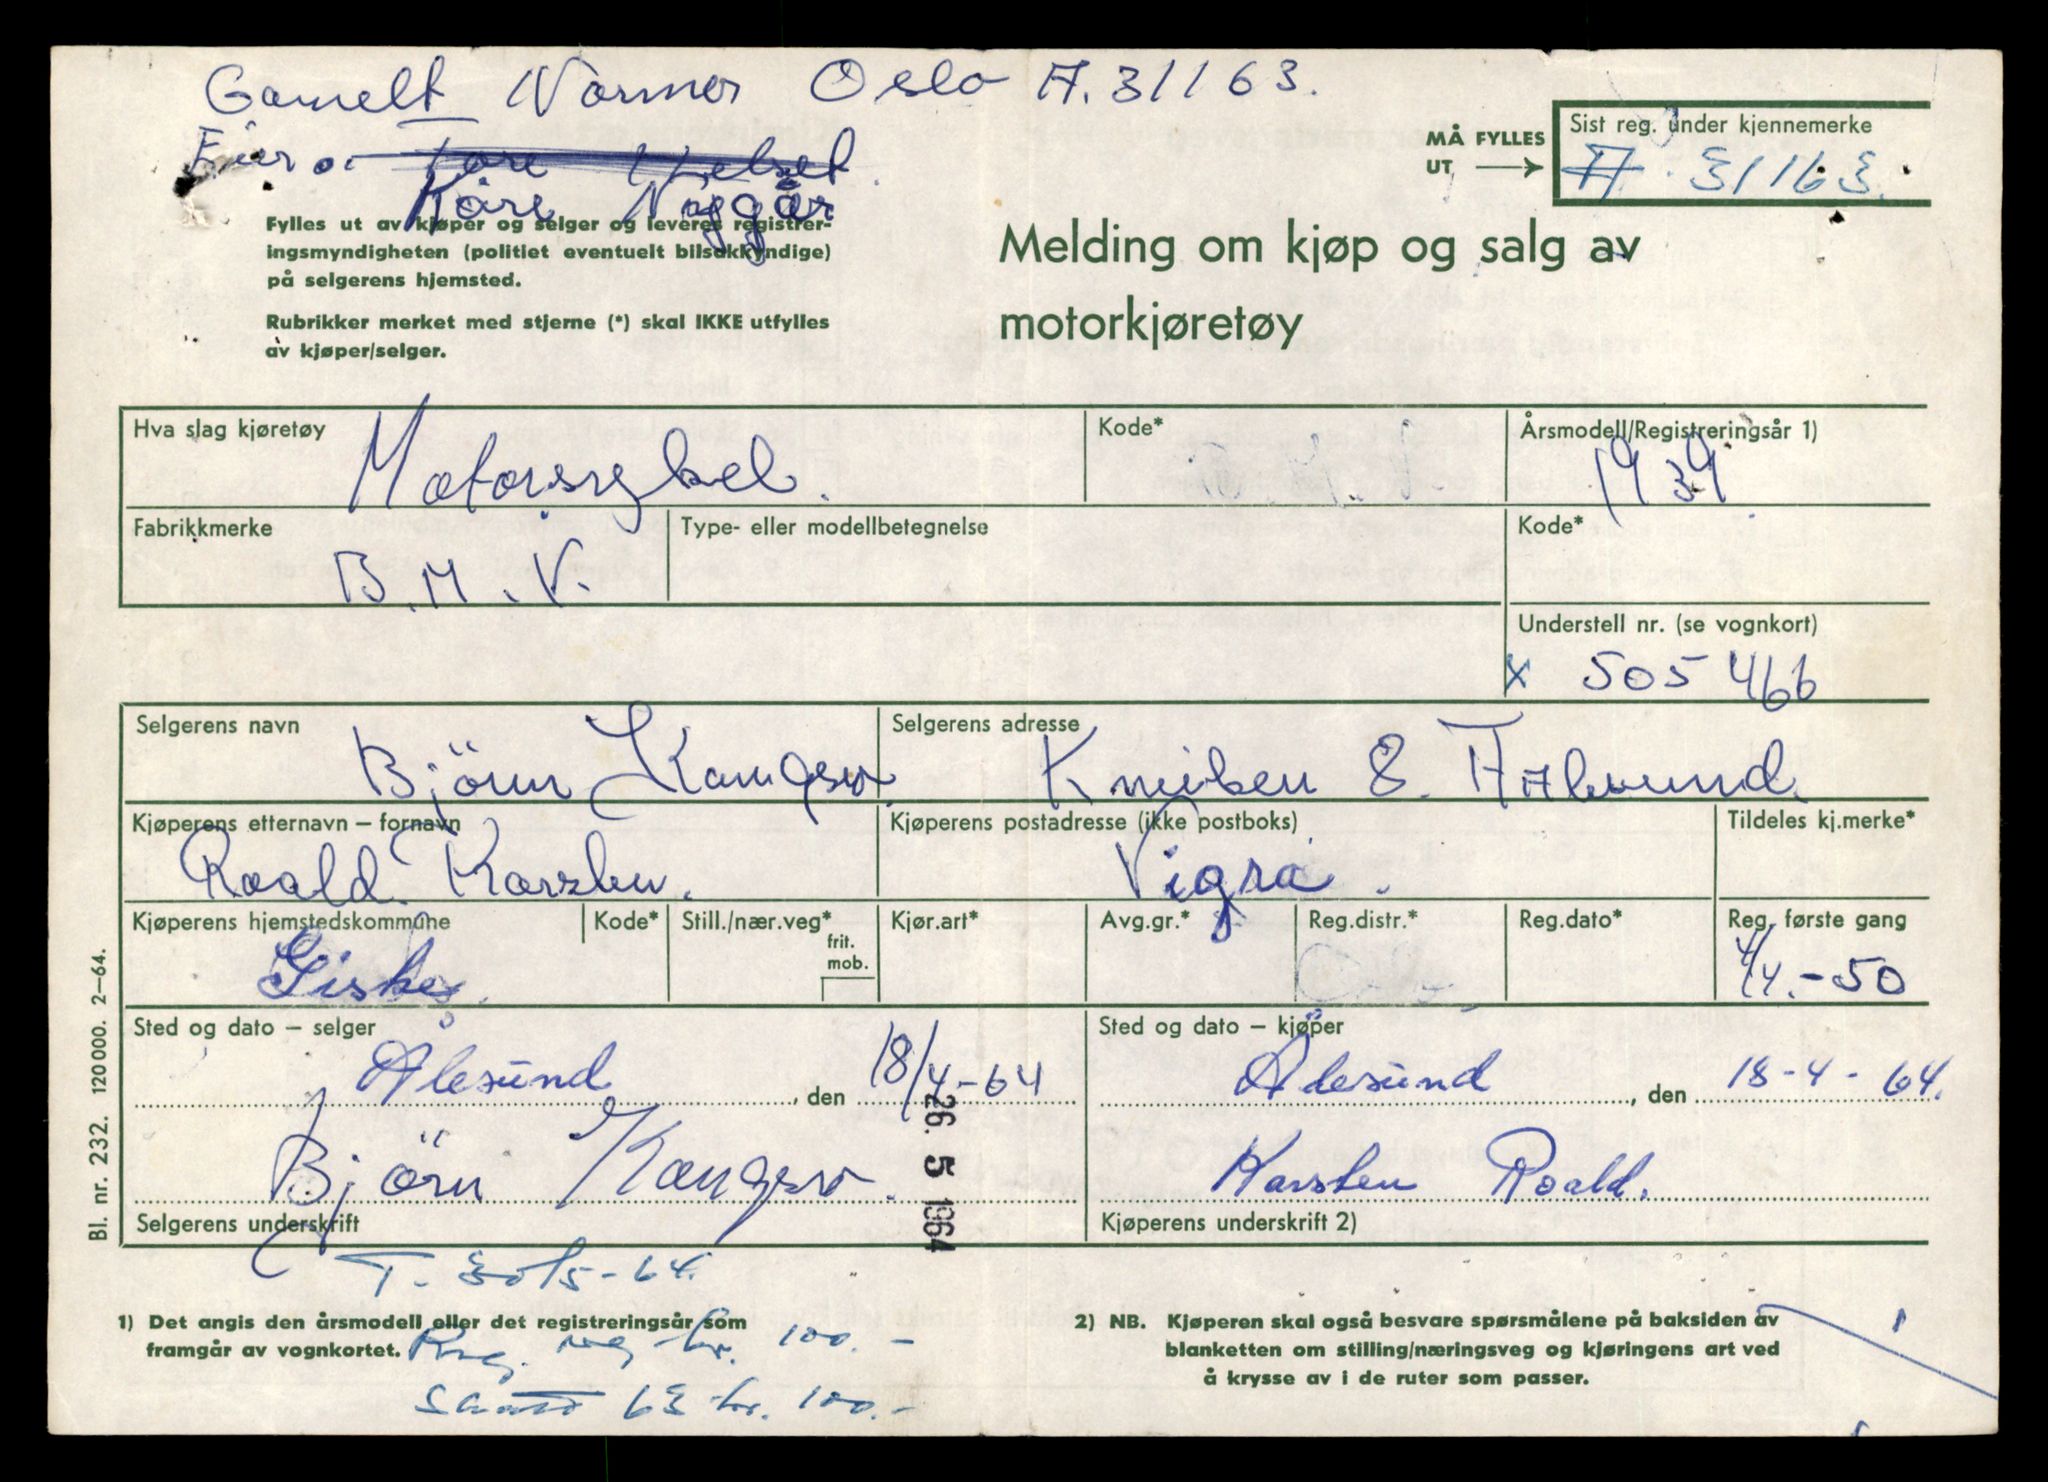 Gamelt Nommer Oslo A. 31163.
Eier. Tore Kelset.
Kåre Niggår
MÅ FYLLES UT → Sist reg. under kjennemerke
A. 31163.
Fylles ut av kjøper og selger og leveres registrer-
ingsmyndigheten (politiet eventuelt bilsakkyndige)
på selgerens hjemsted.
Rubrikker merket med stjerne (*) skal IKKE utfylles
av kjøper/selger.
Melding om kjøp og salg av
motorkjøretøy
Hva slag kjøretøy Kode* Årsmodell/Registreringsår 1)
Motorsykel. 1939.
Fabrikkmerke Type- eller modellbetegnelse Kode*
B.M.V.
Understell nr. (se vognkort)
x 505466
Selgerens navn Selgerens adresse
Björn Kamgsv. Kniben 8. Aalesund.
Kjøperens etternavn – fornavn Kjøperens postadresse (ikke postboks) Tildeles kj.merke*
Roald. Karsten. Vigra.
Kjøperens hjemstedskommune Kode* Still./nær.veg* frit. mob. Kjør.art* Avg.gr.* Reg.distr.* Reg.dato* Reg. første gang
Giske. 4/4.-50
Sted og dato – selger Sted og dato – kjøper
Ålesund, den 18/4-64 Ålesund, den 18-4-64.
26. 5 1964
Björn Kamgsv. Karsten Roald.
Selgerens underskrift Kjøperens underskrift 2)
T. 30/5-64.
1) Det angis den årsmodell eller det registreringsår som
framgår av vognkortet.
Reg. kr. 100.-
63 kr. 100.-
2) NB. Kjøperen skal også besvare spørsmålene på baksiden av
blanketten om stilling/næringsveg og kjøringens art ved
å krysse av i de ruter som passer.
Bl. nr. 232. 120 000. 2–64.